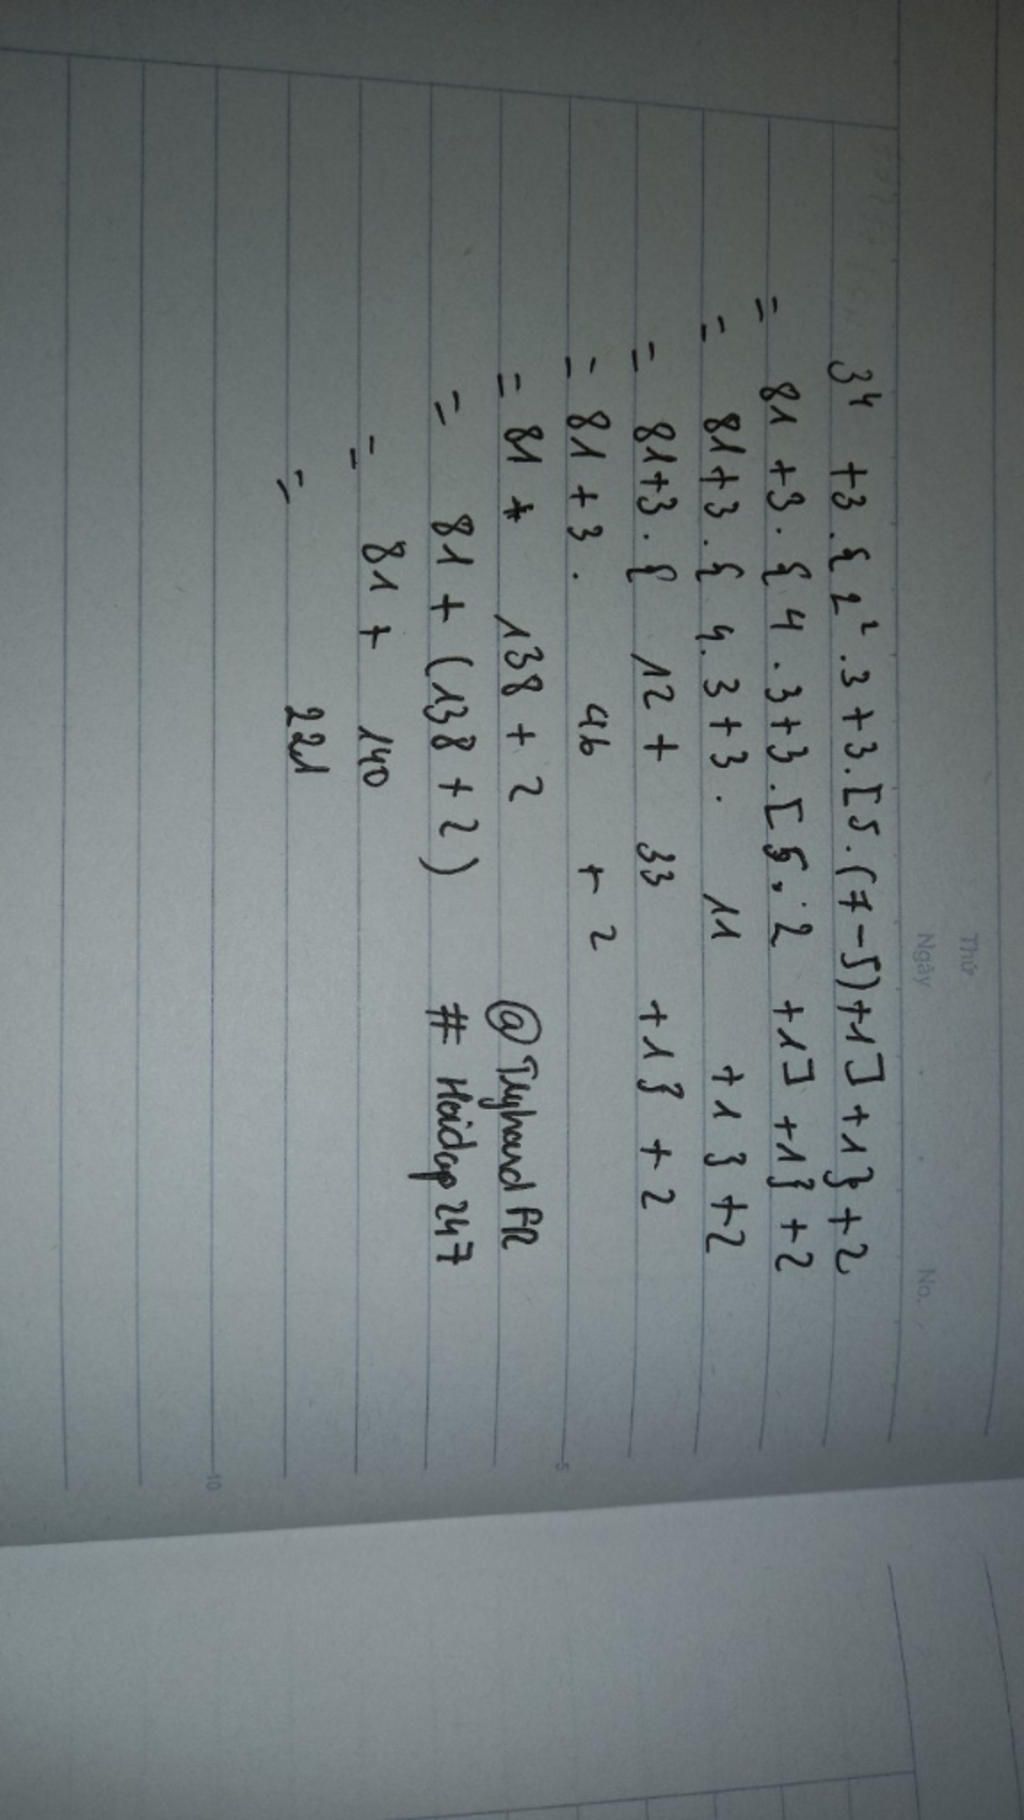 Thứ
Ngày No.
3⁴ +3.{2².3+3.[5.(7-5)+1]+1}+2
= 81+3.{4.3+3.[5.2 +1]+1}+2
= 81+3.{4.3+3. 11 +1}+2
= 81+3.{ 12+ 33 +1}+2
= 81+3. 46 + 2
5
= 81 + 138+2 @TryhardPR
= 81+(138+2) # Hoidap247
= 81+ 140
= 221
10